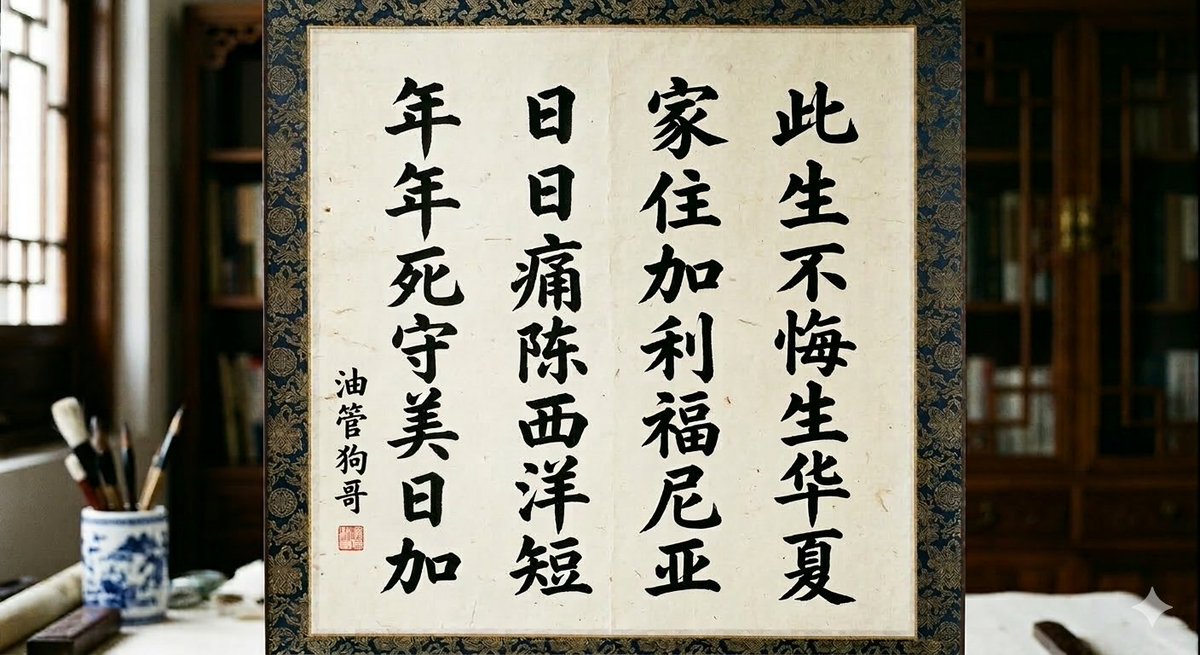 此生不悔生华夏
家住加利福尼亚
日日痛陈西洋短
年年死守美日加
油管狗哥